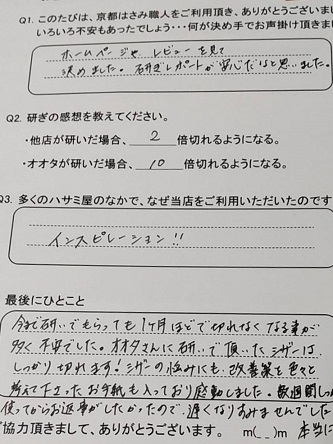 Q1. このたびは、京都はさみ職人をご利用頂き、ありがとうございま
いろいろ不安もあったでしょう・・・何が決め手でお声掛け頂きま
ホームページや レビューを見て
決めました。研ぎレポートが安心だなと思いました。
Q2. 研ぎの感想を教えてください。
・他店が研いだ場合、 2 倍切れるようになる。
・オオタが研いだ場合、 10 倍切れるようになる。
Q3. 多くのハサミ屋のなかで、なぜ当店をご利用いただいたのです
インスピレーション!!
最後にひとこと
今まで研いでもらっても1ヶ月ほどで切れなくなる事が
多く不安でした。オオタさんに研いで頂いたシザーは
しっかり切れます!シザーの悩みにも、改善策を色々と
考えて下さったお手紙も入っており感動しました。数週間しっ
使ってからお返事がしたかったので、遅くなりすみませんでした
協力頂きまして、ありがとうございます。 m(_ _)m 本当に